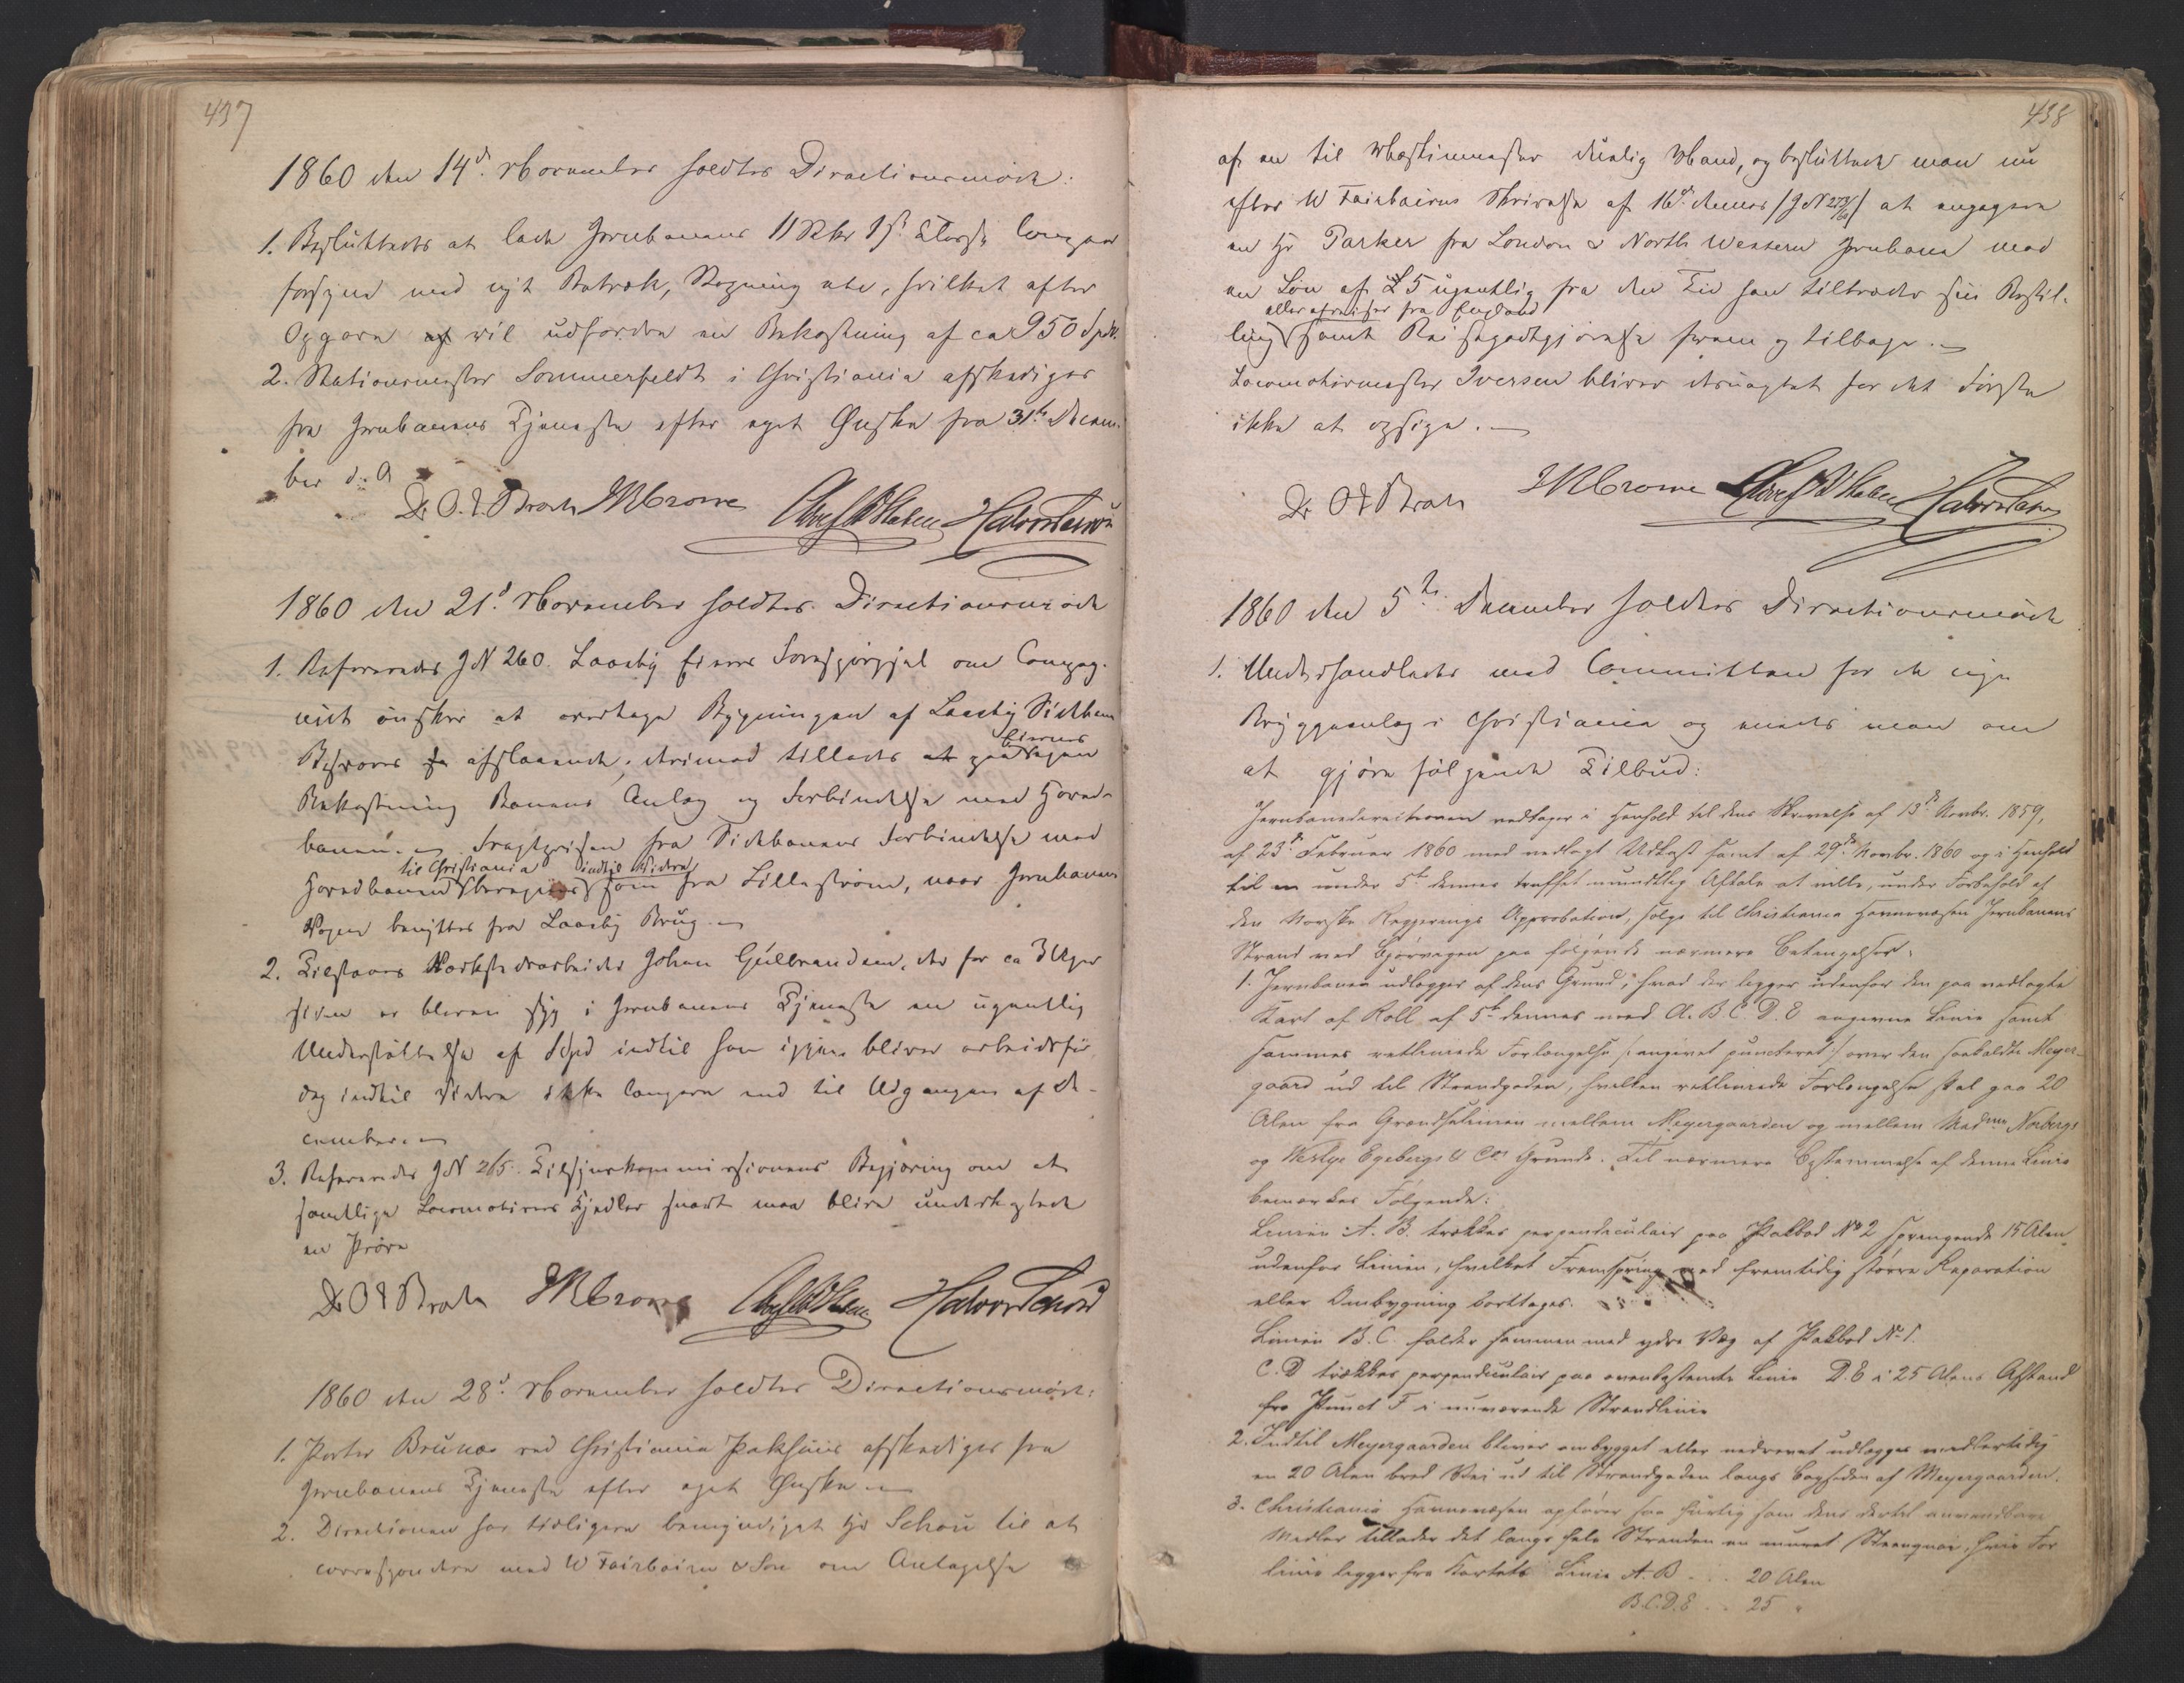 437
1860 den 14d November holdtes Directionsmøde:
1. Besluttedes at lade Jernbanens 11 Stkr 1st Classes Vogner
forsyne med nyt Betræk, Stopning etc, hvilket efter
Opgave vil udfordre en Bekostning af ca 950 Spd.
2. Stationsmester Sommerfeldt i Christiania afskediges
fra Jernbanens Tjeneste efter eget Ønske fra 31te Decem-
ber d. A
Dr O. J. Broch JRCrowe HalvorSchou
1860 den 21d November holdtes Directionsmøde
1. Refereredes JN 260. Laasby Eieres Forespørgsel om Compag-
niet ønsker at overtage Bygningen af Laasby Sidebane
Besvares afslaaende, derimod tillades at paa Eiernes egen
Bekostning Banens Anlæg og Forbindelse med Hoved-
banen. Fragtprisen fra Sidebanens Forbindelse med
Hovedbanen til Christiania beregnes indtil Videre som fra Lillestrøm, naar Jernbanens
Vogne benyttes fra Laasby Brug.
2. Tilstaaes Værkstedarbeider Johan Gulbrandsen, der for ca 3 Uger
siden er bleven syg i Jernbanens Tjeneste en ugentlig
Understøttelse af 1 Spd indtil han igjen bliver arbeidsfør
dog indtil Videre ikke længere end til Udgangen af De-
cember.
3. Refereredes JN 265. Tilsynskommissionens Begjæring om at
samtlige Locomotivers Kjedler snart maa blive underkastede
en Prøve
Dr O J Broch JRCrowe HalvorSchou
1860 den 28d November holdtes Directionsmøde:
1. Porter Brunæs ved Christiania Pakhuus afskediges fra
Jernbanens Tjeneste efter eget Ønske
2. Directionen har tidligere bemyndiget Hr Schou til at
correspondere med W Fairbairn & Son om Antagelse
438
af en til Mestermester duelig Mand, og besluttede man nu
efter W Fairbairns Skrivelse af 16d dennes (JN 273/60) at engagere
en Hr Parker fra London & North Western Jernbane med
en Løn af £ 5 ugentlig fra den Tid han tiltræder sin Bestil-
eller afreiser fra England
ling samt Reisegodtgjørelse frem og tilbage.
Locomotivmester Iversen bliver desuagtet for det Første
ikke at opsige.
Dr O J Broch JRCrowe HalvorSchou
1860 den 5te December holdtes Directionsmøde
1. Underhandledes med Committeen for de nye
Bryggeanlæg i Christiania og enedes man om
at gjøre følgende Tilbud:
Jernbanedirectionen vedtager i Henhold til dens Skrivelse af 13de Novbr. 1859,
af 23de Februar 1860 med vedlagt Udkast samt af 29de Novbr. 1860 og i Henhold
til en under 5te dennes truffet mundtlig Aftale at ville, under Forbehold af
den Norske Regjerings Approbation, sælge til Christiania Havnevæsen Jernbanens
Strand ved Bjørvigen paa følgende nærmere Betingelser:
1. Jernbanen udlægger af dens Grund, hvad der ligger udenfor den paa vedlagte
Kart af Roll af 5te dennes med A. B. C. D. E angivne Linie samt
sammes retliniede Forlængelse /: angivet puncteret :/ over den saakaldte Meyer-
gaard ud til Strandgaden, hvilken retliniede Forlængelse skal gaa 20
Alen fra Grændselinien mellem Meyergaarden og mellem Madme Norbergs
og Westye Egebergs & Co's Grunde. Til nærmere Bestemmelse af denne Linie
bemærkes Følgende:
Linien A. B. trækkes perpendiculair paa Pakbod No 2 springende 15 Alen
udenfor Linien, hvilket Fremspring ved fremtidig større Reparation
eller Ombygning borttages.
Linien B. C. falder sammen med ydre Væg af Pakbod No 1.
C. D trækkes perpendiculair paa ovenbestemte Linie D. E i 25 Alens Afstand
fra Punct F i nuværende Strandlinie
2. Indtil Meyergaarden bliver ombygget eller nedrevet udlægges midlertidig
en 20 Alen bred Vei ud til Strandgaden langs Bagsiden af Meyergaarden.
3. Christiania Havnevæsen opfører saa hurtig som dens dertil anvendbare
Midler tillader det langs hele Stranden en muret Steenquai, hvis For
linie ligger fra Kartets Linie A. B . . . 20 Alen
B. C. D. E . . 25 "